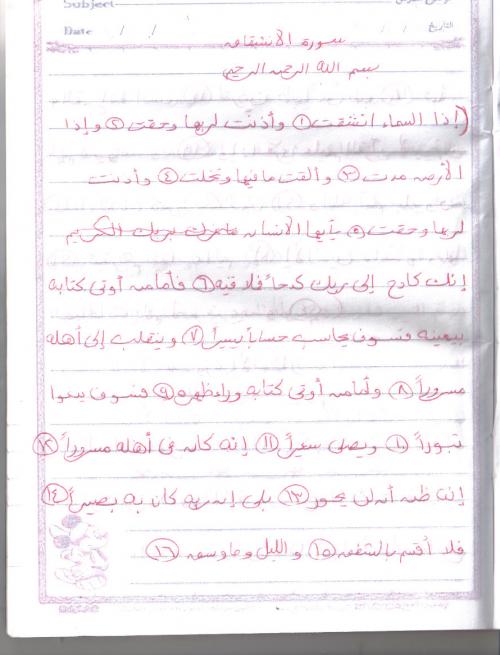 Subject
Date / /
التاريخ / /
سورة الانشقاق
بسم الله الرحمن الرحيم
(إذا السماء انشقت ١ وأذنت لربها وحقت ٢ وإذا
الأرض مدت ٣ وألقت ما فيها وتخلت ٤ وأذنت
لربها وحقت ٥ يأيها الانسان ما غرك بربك الكريم
إنك كادح إلى ربك كدحاً فملاقيه ٦ فأما من أوتى كتابه
بيمينه فسوف يحاسب حساباً يسيراً ٧ وينقلب إلى أهله
مسروراً ٨ وأما من أوتى كتابه وراء ظهره ٩ فسوف يدعوا
ثبوراً ١٠ ويصلى سعيراً ١١ إنه كان فى أهله مسروراً ١٢
إنه ظن أن لن يحور ١٣ بلى إن ربه كان به بصيراً ١٤
فلا أقسم بالشفق ١٥ والليل وما وسق ١٦